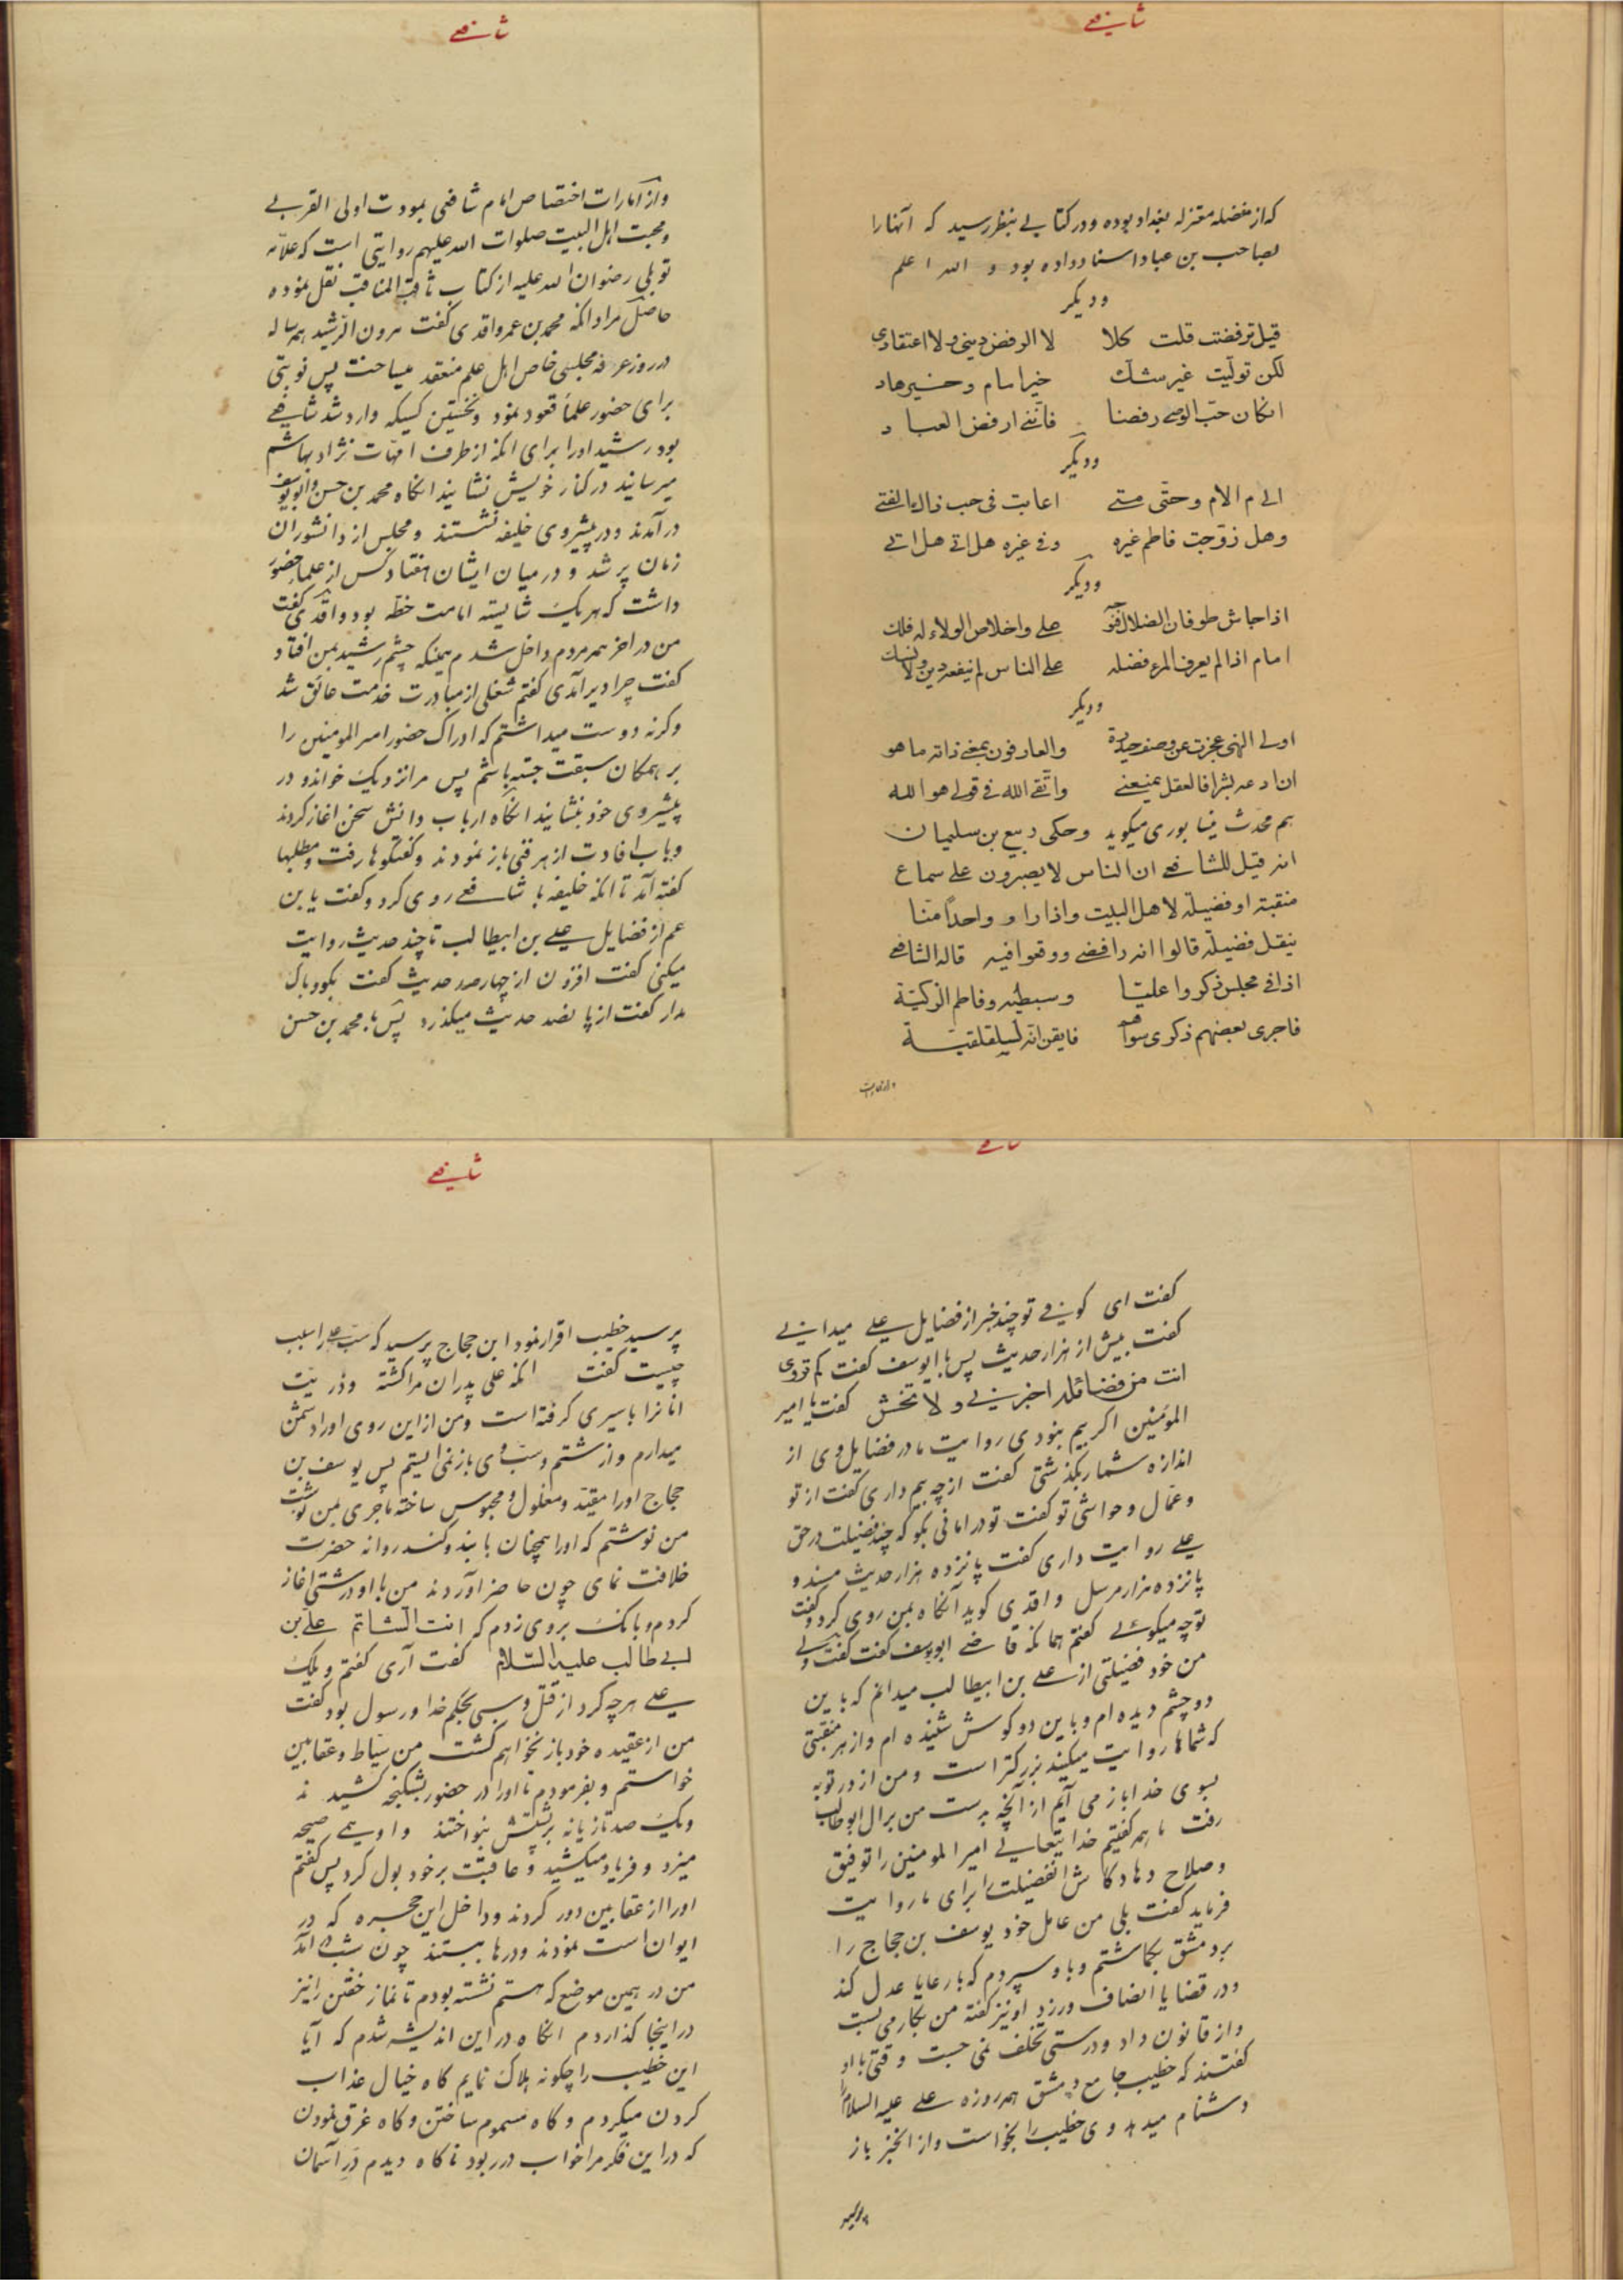 شافعی
که از مفضله معتزله بغداد بوده و در کتابی بنظر رسید که آنها را
بصاحب بن عباد اسناد داده بود و الله اعلم
و دیگر
قیل ترفضت قلت کلا لا الرفض دینی و لا اعتقادی
لکن تولّیت غیر شک خیر امام و خیر هاد
انکان حبّ الوصی رفضا فانّنی ارفض العباد
و دیگر
الی م الام و حتّی متی اعاتب فی حب ذاک الفتی
وهل زوّجت فاطم غیره وفی غیره هل اتی هل اتی
و دیگر
اذا جاش طوفان الضلال علی واخلاص الولاء له فلک
امام اذا لم یعرف المرء فضله علی الناس لم ینفعه دین ولا نسک
و دیگر
اولی النهی عجزت عن وصف حیدرة والعارفون بمعنی ذاته ماهو
ان ادعه بشرا فالعقل یمنعنی واتّقی الله فی قولی هو الله
هم محدث نیشابوری میکوید وحکی ربیع بن سلیمان
انه قیل للشافعی ان الناس لا یصبرون علی سماع
منقبته او فضیلة لاهل البیت واذا راو واحداً منّا
ینقل فضیلة قالوا انه رافضی ووقعوا فیه قال الشافعی
اذا فی مجلس ذکروا علیّا وسبطیه وفاطم الزکیّة
فاجری بعضهم ذکری سواهم فایقن انّه لسلقلقیّة
و از امارات
شافعی
و از امارات اختصاص امام شافعی بمودت اولی القربی
و محبت اهل البیت صلوات الله علیهم روایتی است که علّامه
توبلی رضوان الله علیه از کتاب ثاقب المناقب نقل نموده
حاصل مراد انکه محمد بن عمر واقدی کفت هرون الرّشید همه ساله
در روز عرفه مجلسی خاص اهل علم منعقد میساخت پس نوبتی
برای حضور علماء قعود نمود و نخستین کسیکه وارد شد شافعی
بود رشید او را برای انکه از طرف امّهات نژاد بهاشم
میرسانید در کنار خویش نشانید انکاه محمد بن حسن و ابو یوسف
در آمدند و در پیشروی خلیفه نشستند و مجلس از دانشوران
زمان پر شد و در میان ایشان هفتاد کس از علماء حضور
داشت که هر یک شایسته امامت خطّه بود واقدی کفت
من در اخر همه مردم داخل شدم همینکه چشم رشید بمن افتاد
کفت چرا دیر آمدی کفتم شغلی از مبادرت خدمت عائق شد
و کرنه دوست میداشتم که ادراک حضور امیر المومنین را
بر همکان سبقت جسته باشم پس مرا نزدیک خواند و در
پیشروی خود بنشانید انکاه ارباب دانش سخن اغاز کردند
و باب افادت از هر فنی باز نمودند و کفتکوها رفت و مطلبها
کفته آمد تا انکه خلیفه با شافعی روی کرد و کفت یا بن
عم از فضایل علی بن ابیطالب تا چند حدیث روایت
میکنی کفت افزون از چهار صد حدیث کفت بکو و باک
مدار کفت از پانصد حدیث میکذرد پس با محمد بن حسن
شافعی
کفت ای کوفی تو چند خبر از فضایل علی میدانی
کفت بیش از هزار حدیث پس با ابو یوسف کفت کم تروی
انت من فضائله اخبرنی و لا تخش کفت یا امیر
المؤمنین اکر بیم نبودی روایت ما در فضایل وی از
اندازه شمار بکذشتی کفت از چه بیم داری کفت از تو
و عمّال و حواشی تو کفت تو در امانی بکو که چند فضیلت در حق
علی روایت داری کفت پانزده هزار حدیث مسند و
پانزده هزار مرسل واقدی کوید آنکاه بمن روی کرد و کفت
تو چه میکوئی کفتم همانکه قاضی ابو یوسف کفت کفت ولی
من خود فضیلتی از علی بن ابیطالب میدانم که باین
دو چشم دیده ام و باین دو کوش شنیده ام و از هر منقبتی
که شماها روایت میکنید بزرکتر است و من از در توبه
بسوی خدا باز می آیم از آنچه بدست من بر ال ابوطالب
رفت ما همه کفتیم خدایتعالی امیر المومنین را توفیق
و صلاح دهاد کاش انفضیلت را برای ما روایت
فرماید کفت بلی من عامل خود یوسف بن حجاج را
بر دمشق بکماشتم و با و سپردم که با رعایا عدل کند
و در قضایا انصاف ورزد او نیز کفته من بکار می بست
و از قانون داد و درستی تخلف نمی جست وقتی با او
کفتند که خطیب جامع دمشق همه روزه علی علیه السلام را
دشنام میدهد وی خطیب را بخواست و از انخبر باز
پرسید
شافعی
پرسید خطیب اقرار نمود ابن حجاج پرسید که سبّ علی را سبب
چیست کفت انکه علی پدران مرا کشته و ذریّت
انانرا باسیری کرفته است و من از این روی او را دشمن
میدارم و از شتم و سبّ وی باز نمی ایستم پس یوسف بن
حجاج او را مقیّد و مغلول و محبوس ساخته ماجری بمن نوشت
من نوشتم که او را همچنان با بند و کند روانه حضرت
خلافت نمای چون حاضر آوردند من با او درشتی اغاز
کردم و بانک بر وی زدم که انت الشاتم علی بن
ابی طالب علیه السّلام کفت آری کفتم ویلک
علی هر چه کرد از قتل و سبی بحکم خدا و رسول بود کفت
من از عقیده خود باز نخواهم کشت من سیّاط و عقابین
خواستم و بفرمودم تا او را در حضور بشکنجه کشیدند
و یک صد تازیانه بر پشتش بنواختند و او همی صیحه
میزد و فریاد میکشید و عاقبت بر خود بول کرد پس کفتم
او را از عقابین دور کردند و داخل این حجره که در
ایوان است نمودند و درها ببستند چون شب در آمد
من در همین موضع که هستم نشسته بودم تا نماز خفتن را نیز
در اینجا کذاردم انکاه در این اندیشه شدم که آیا
این خطیب را چکونه هلاک نمایم کاه خیال عذاب
کردن میکردم و کاه مسموم ساختن و کاه غرق نمودن
که در این فکر مرا خواب در ربود ناکاه دیدم در آسمان